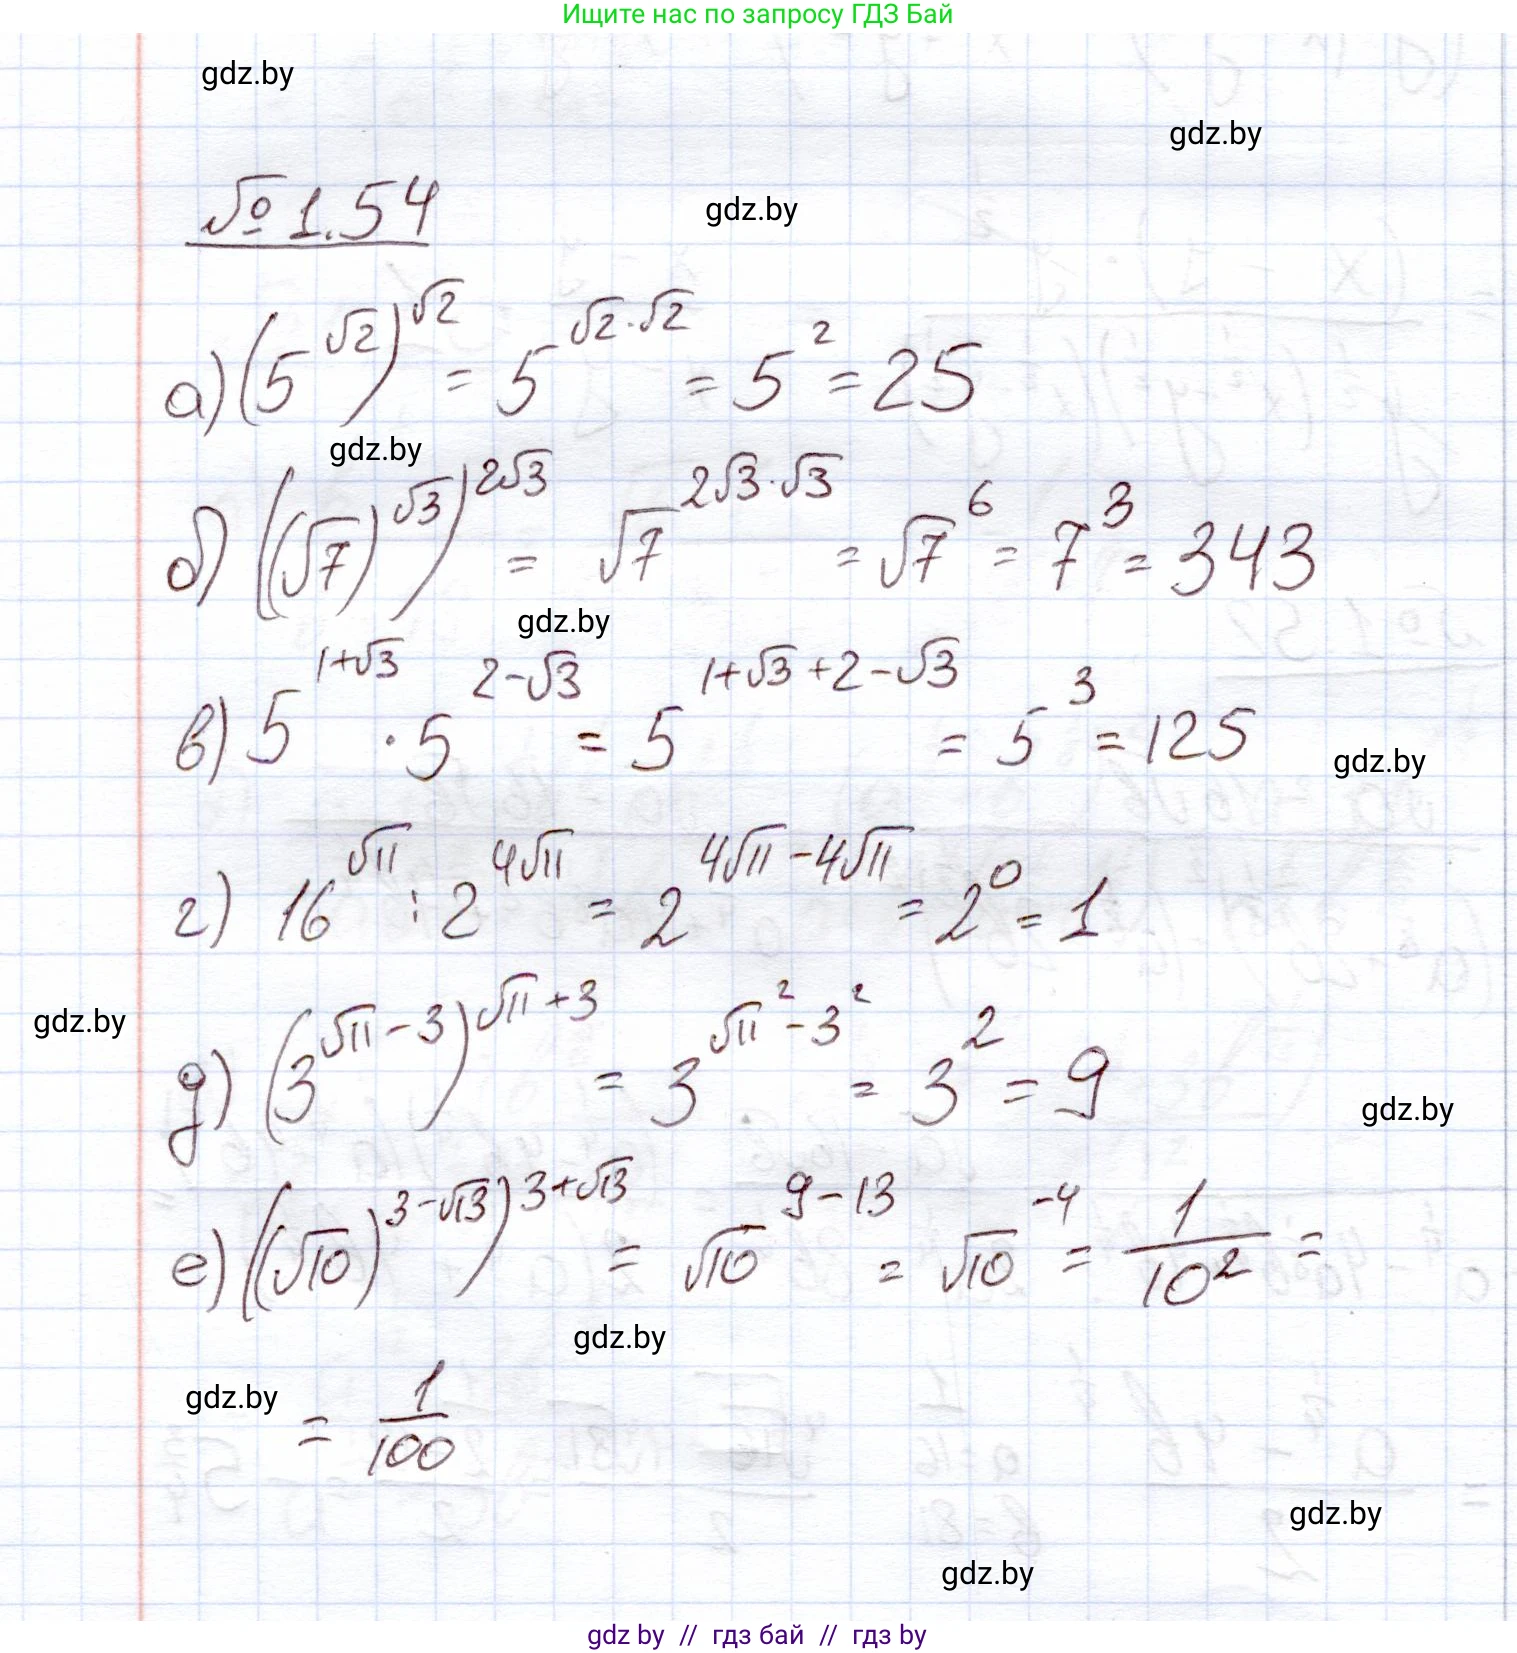 Ищите нас по запросу ГДЗ Бай
gdz.by
gdz.by
№ 1.54
gdz.by
а) (5^√2)^√2 = 5^(√2·√2) = 5^2 = 25
gdz.by
б) ((√7)^√3)^(2√3) = √7^(2√3·√3) = √7^6 = 7^3 = 343
gdz.by
в) 5^(1+√3) · 5^(2-√3) = 5^(1+√3+2-√3) = 5^3 = 125
gdz.by
г) 16^√11 : 2^(4√11) = 2^(4√11-4√11) = 2^0 = 1
gdz.by
д) (3^(√11-3))^(√11+3) = 3^(√11^2-3^2) = 3^2 = 9
gdz.by
е) ((√10)^(3-√13))^(3+√13) = √10^(9-13) = √10^(-4) = 1/10^2 =
gdz.by
gdz.by
= 1/100
gdz.by
gdz.by
gdz by // гдз бай // гдз by